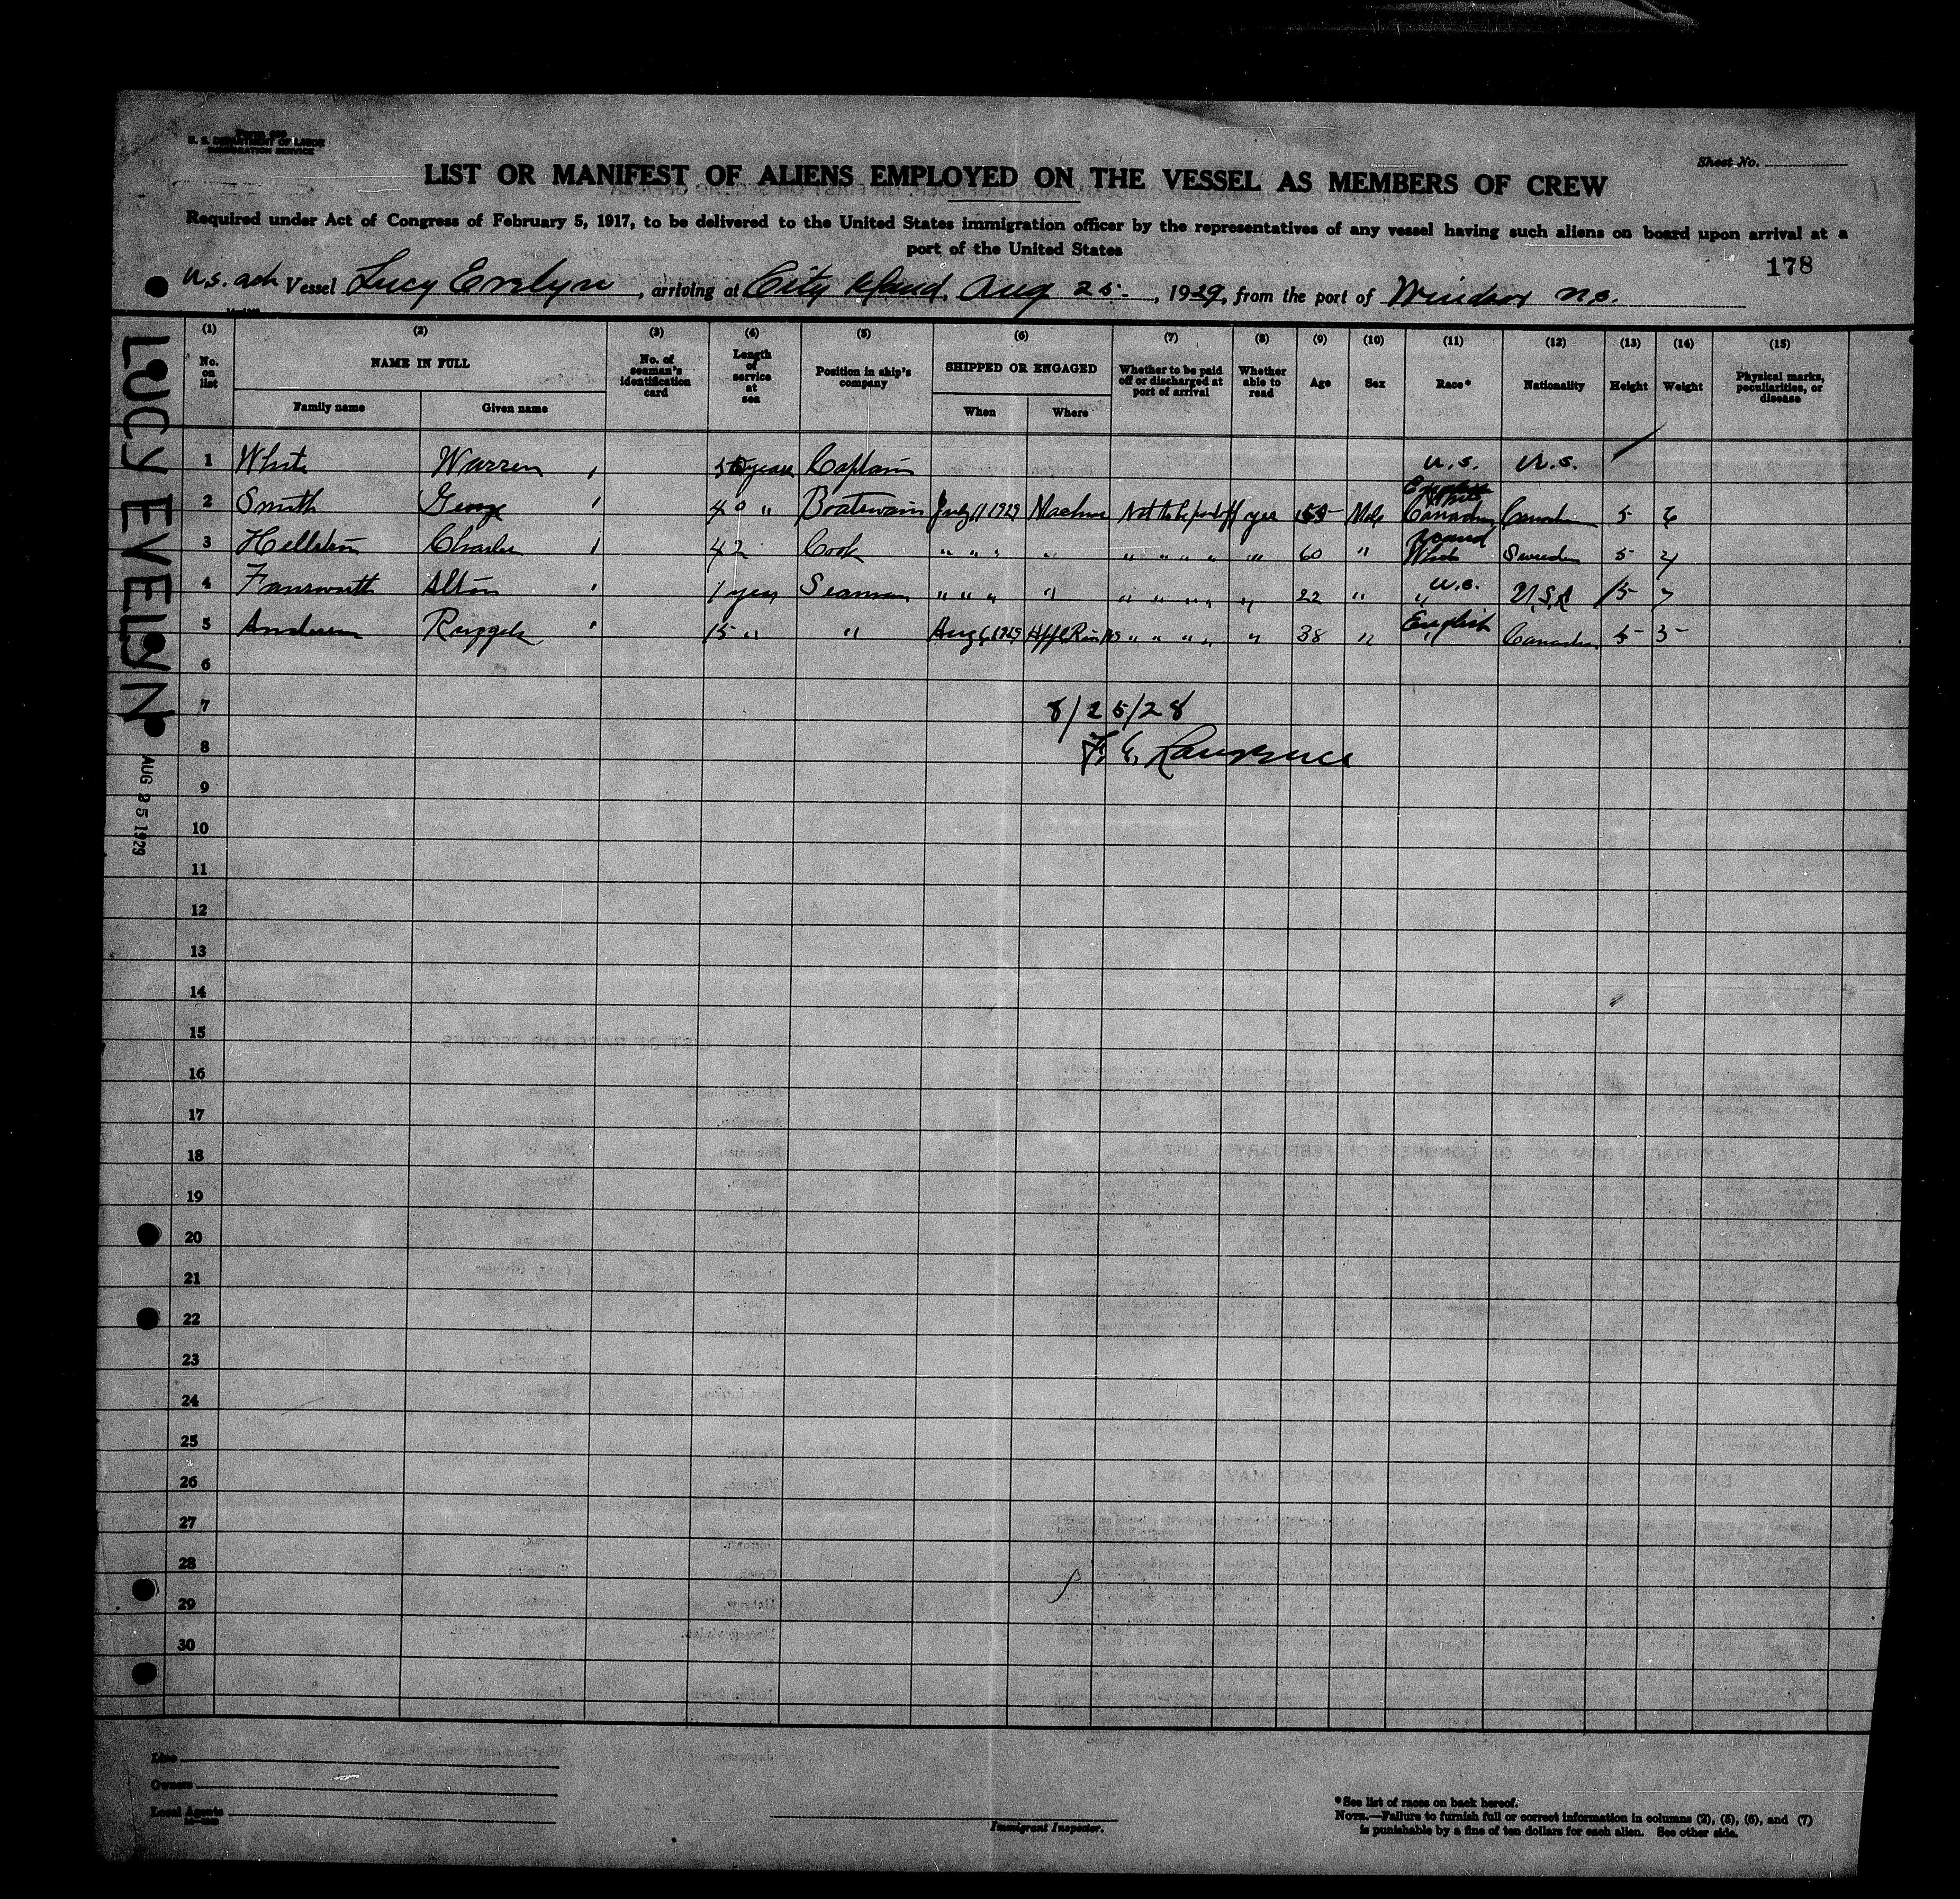 Form 689
U. S. DEPARTMENT OF LABOR
IMMIGRATION SERVICE
Sheet No.
LIST OR MANIFEST OF ALIENS EMPLOYED ON THE VESSEL AS MEMBERS OF CREW
Required under Act of Congress of February 5, 1917, to be delivered to the United States immigration officer by the representatives of any vessel having such aliens on board upon arrival at a
port of the United States
178
U.S. sch Vessel Lucy Evelyn, arriving at City Island, Aug 25, 1929, from the port of Windsor N.S.
LUCY EVELYN
AUG 25 1929
(1) (2) (3) (4) (5) (6) (7) (8) (9) (10) (11) (12) (13) (14) (15)
No. on list NAME IN FULL No. of seaman's identification card Length of service at sea Position in ship's company SHIPPED OR ENGAGED Whether to be paid off or discharged at port of arrival Whether able to read Age Sex Race* Nationality Height Weight Physical marks, peculiarities, or disease
Family name Given name When Where
1 White Warren years Captain U.S. U.S.
2 Smith George 40 " Boatswain July 11 1929 Machias Not to be paid off yes 55 Male Canadian Canadian 5 6
3 Hellstrom Charles 42 Cook " " " " " " " " " 60 " White Sweden 5 4
4 Farnsworth Alton 1 year Seaman " " " " " " " " " 22 " " U.S. U.S.A 5 7
5 Anderson Ruggels 15 " " Aug 6 1929 " " " " " 38 " English " Canadian 5 5
6
7
8/25/28
8
F. E. Lawrence
9
10
11
12
13
14
15
16
17
18
19
20
21
22
23
24
25
26
27
28
29
30
Line
Owners
Local Agents
Immigrant Inspector.
*See list of races on back hereof.
NOTE.—Failure to furnish full or correct information in columns (2), (5), (6), and (7)
is punishable by a fine of ten dollars for each alien. See other side.